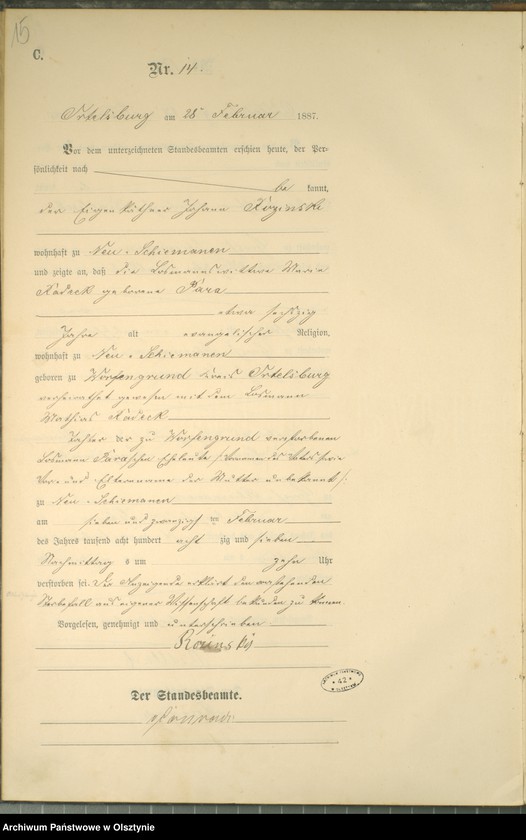 15
C.
Nr. 14.
Ortelsburg am 28 Februar 1887.
Vor dem unterzeichneten Standesbeamten erschien heute, der Per-
sönlichkeit nach
be kannt,
der Eigenkäthner Johann
wohnhaft zu Neu-Schiemanen
und zeigte an, daß die Losmannswittwe Marie
Radeck geborene Pära
etwa sechszig
Jahre alt evangelischer Religion,
wohnhaft zu Neu-Schiemanen
geboren zu Worfengrund Kreis Ortelsburg
verheirathet gewesen mit dem Losmann
Mathias Radeck
Tochter der zu Worfengrund verstorbenen
Losmann Pära'schen Eheleute /: Vornamen des Vaters sowie
Vor- und Elternname der Mutter unbekannt :/
zu Neu-Schiemanen
am sieben und zwanzigsten Februar
des Jahres tausend acht hundert acht zig und sieben
Nachmittag s um zehn Uhr
verstorben sei. Der Anzeigende erklärt den vorstehenden
Sterbefall aus eigener Wissenschaft bekunden zu können.
Vorgelesen, genehmigt und unterschrieben
Der Standesbeamte.
42
Archiwum Państwowe w Olsztynie